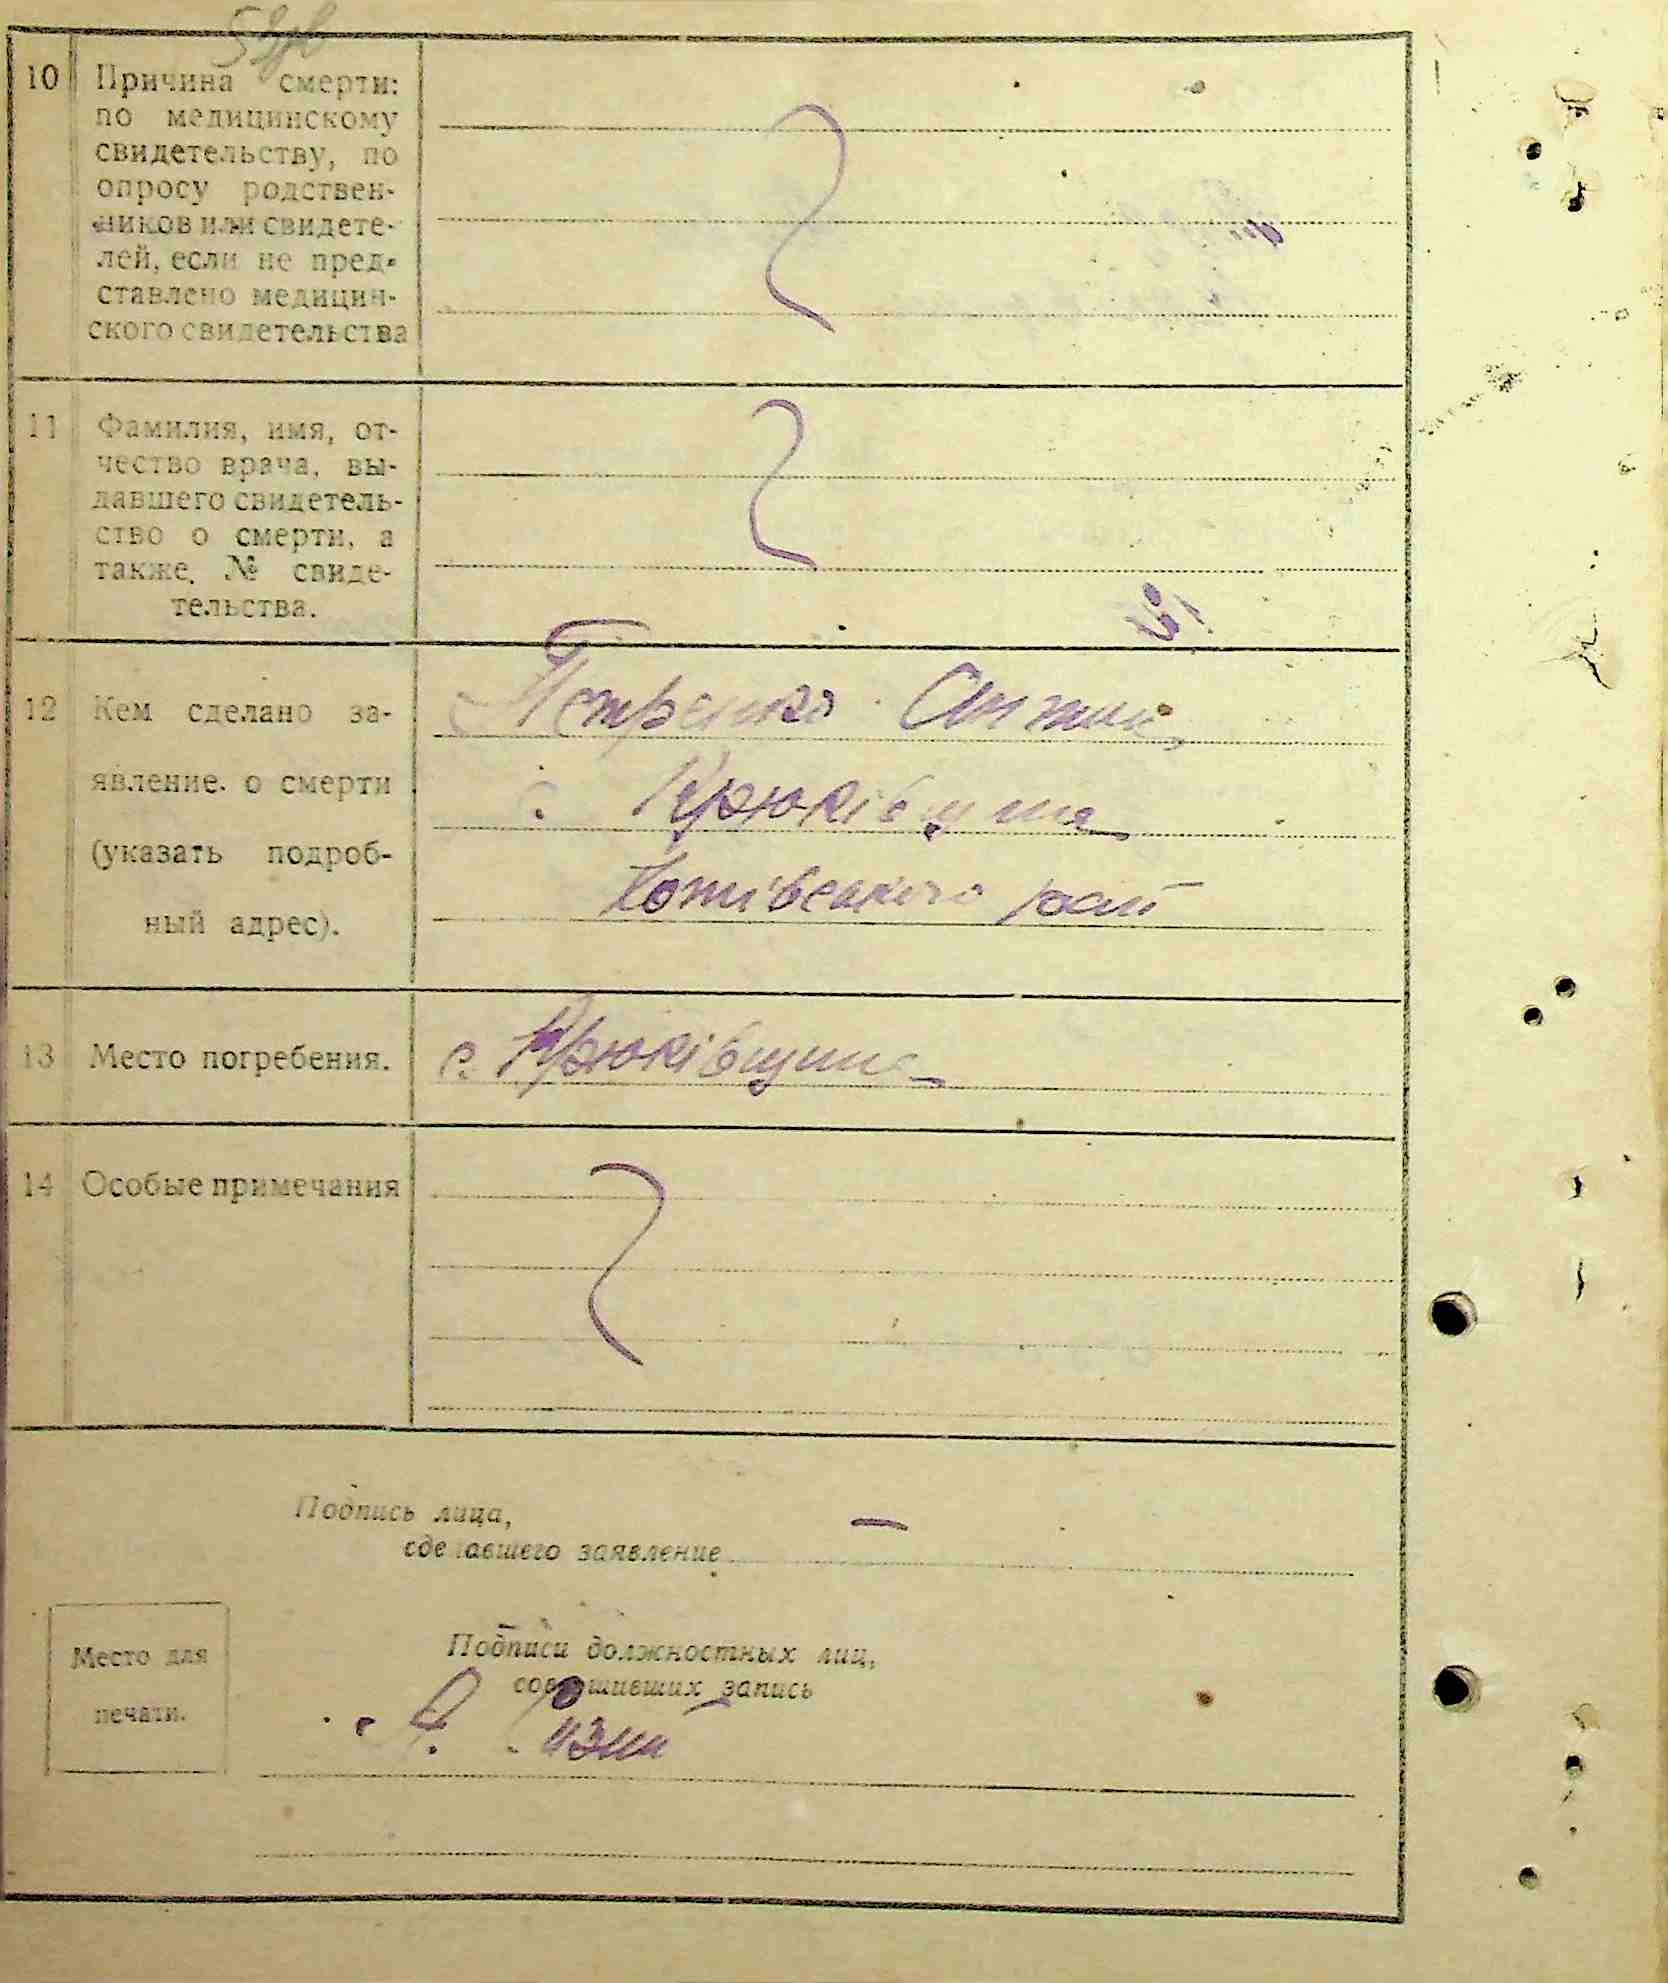 10 Причина смерти:
по медицинскому
свидетельству, по
опросу родствен-
ников или свидете-
лей, если не пред-
ставлено медицин-
ского свидетельства
11 Фамилия, имя, от-
чество врача, вы-
давшего свидетель-
ство о смерти, а
также, № свиде-
тельства.
12 Кем сделано за-
явление. о смерти
(указать подроб-
ный адрес).
Петренко
с. Крюківщина
Хотівського рай
13 Место погребения.
с. Крюківщина
14 Особые примечания
Подпись лица,
сделавшего заявление
Место для
печати.
Подписи должностных лиц,
совершивших запись